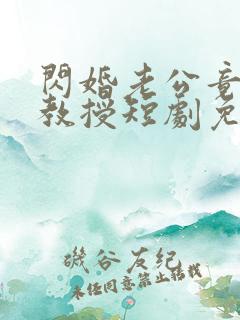 閃婚老公竟
教授短劇免
磯谷友紀
未经同意禁止转载